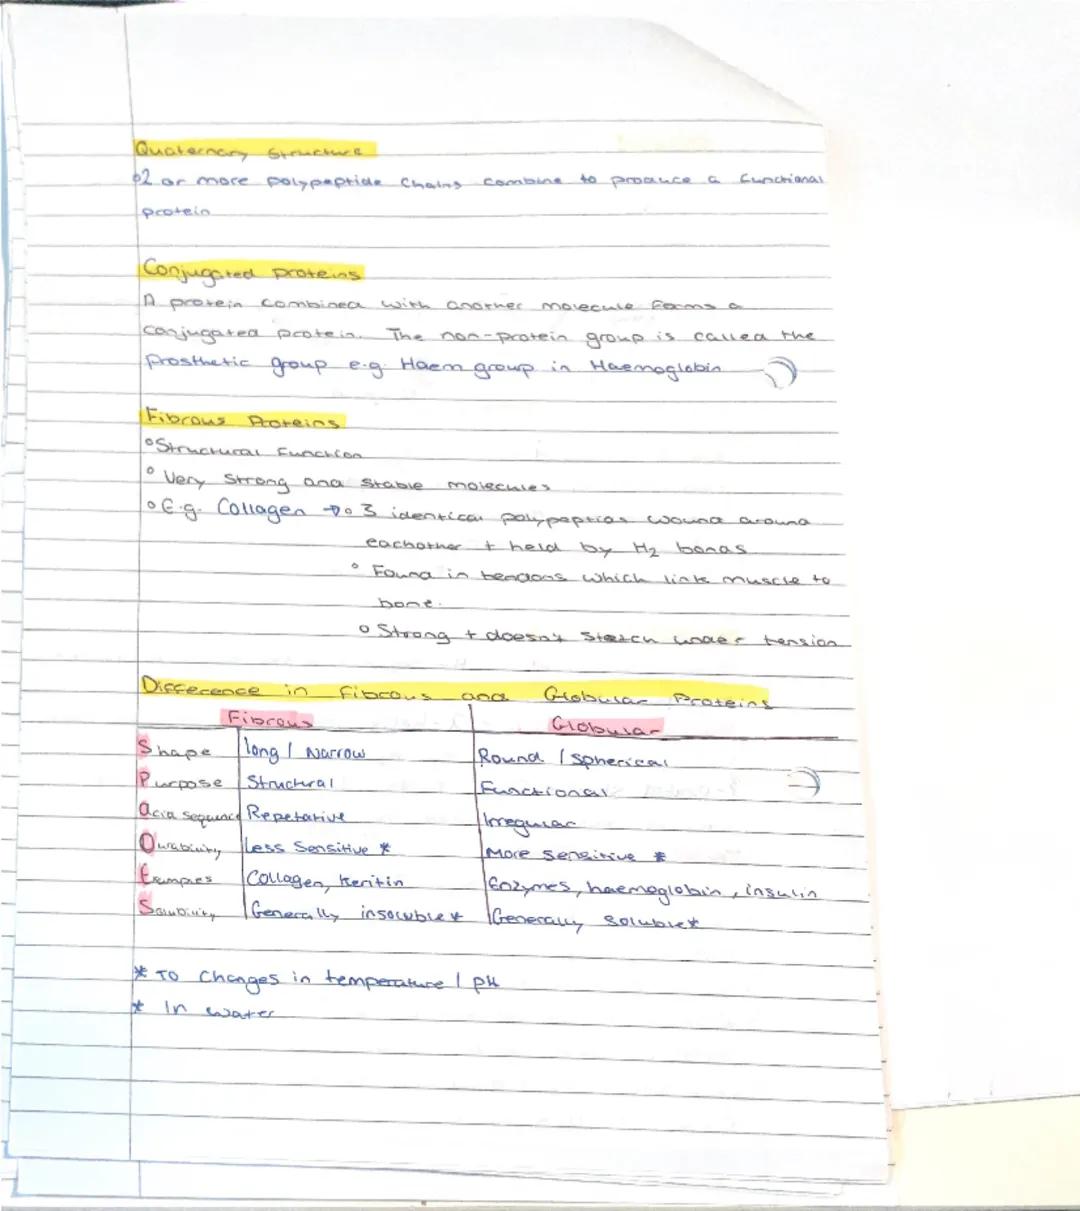 Quaternary Structure
°2 or more polypeptide chains combine to produce a functional
protein
Conjugated proteins
A protein combined with another molecule forms a
conjugated protein. The non-protein group is called the
prosthetic group e.g. Haem group in Haemoglobin
Fibrous Proteins
° Structural Function
° Very strong and stable molecules
° E.g. Collagen → ° 3 identical polypeptides wound around
eachother + held by H₂ bonds
° Found in tendons which link muscle to
bone.
° Strong + doesn't stretch under tension
Difference in fibrous and Globular Proteins
Fibrous Globular
Shape long / Narrow Round / Spherical
Purpose Structural Functional
acid sequence Repetative Irregular
Durability Less Sensitive * More sensitive *
Examples Collagen, Keritin Enzymes, haemoglobin, insulin
Solubility Generally insoluble * Generally soluble *
* To Changes in temperature / pH
* In water